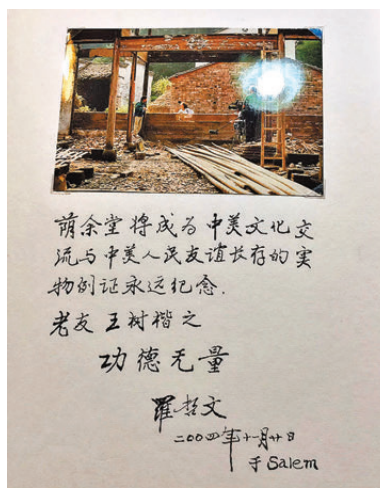 荫余堂将成为中美文化交
流与中美人民友谊长存的实
物例证永远纪念.
老友王树楷之
功德无量
罗哲文
二〇〇四年十一月廿日
于Salem